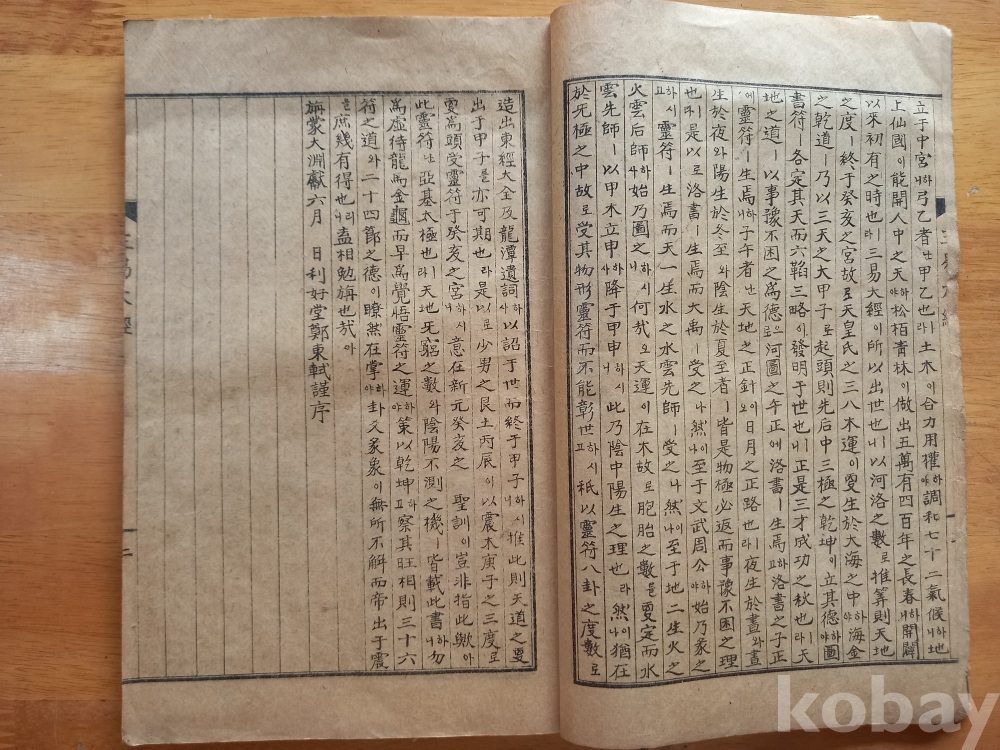 立于中宮하니弓乙者난甲乙也라土木이合力用權하야調和七十二氣候하니地
上仙國이能開人中之天하야松栢青林이做出五萬有四百年之長春하니開闢
以來初有之時也라三易大經이所以出世也니以河洛之數로推算則天地
之度ㅣ終于癸亥之宮故로天皇氏之三八木運이更生於大海之中하야海金
之乾道ㅣ乃以三天之大甲子로起頭則先后中三極之乾坤이立其德하야圖
書符ㅣ各定其天而六韜三略이發明于世也니正是三才成功之秋也라天
地之道ㅣ以事豫不困之爲德으로河圖之午正에洛書ㅣ生焉하고洛書之子正
에靈符ㅣ生焉하니子午者난天地之正針이오日月之正路也라夜生於晝와晝
生於夜와陽生於冬至와陰生於夏至者ㅣ皆是物極必返而事豫不困之理
也라是以로洛書ㅣ生焉而大禹ㅣ受之나然이나至于文武周公하야始乃象之
하시고靈符ㅣ生焉而天一生水之水雲先師ㅣ受之나然이나至于地二生火之
火雲后師하사始乃圖之하시니何哉오天運이在木故로胞胎之數를更定而水
雲先師ㅣ以甲木立申하사降于甲申하시니此乃陰中陽生之理也라然이나猶在
於无極之中故로受其物形靈符而不能彰世하시고秖以靈符八卦之度數로
造出東經大全及龍潭遺詞하사以詔于世而終于甲子하시니推此則天道之更
出于甲子를亦可期也라是以로少男之艮土丙辰이以震木庚子之三度로
更爲頭受靈符于癸亥之宮하시니意在新元癸亥之 聖訓이豈非指此歟아
此靈符난亞基太極也라天地无窮之數와陰陽不測之機ㅣ皆載此書하니勿
爲虛待龍馬金龜而早爲覺悟靈符之運하야策以乾坤하고察其旺相則三十六
符之道와二十四節之德이瞭然在掌하야卦爻彖象이無所不解而帝出于震
을庶幾有得也리니盍相勉旃也哉아
旃蒙大淵獻六月 日利好堂鄭東軾謹序
三易大經
二